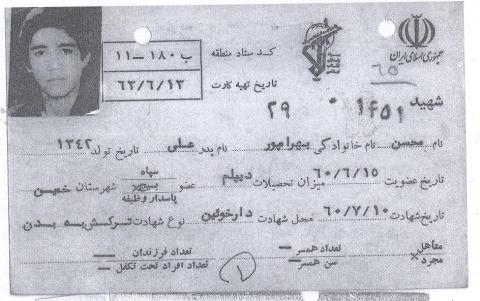 جمهوری اسلامی ایران
۶۵
کد ستاد منطقه
ب ۱۸۰ - ۱۱
تاریخ تهیه کارت
۶۳/۶/۱۳
شهید ۱۶۵۱ ۲۹
نام محسن نام خانوادگی بهرامپور نام پدر علی تاریخ تولد ۱۳۴۲
تاریخ عضویت ۶۰/۶/۱۵ میزان تحصیلات دیپلم عضو سپاه بسیج× پاسدار وظیفه شهرستان خمین
تاریخ شهادت ۶۰/۷/۱۰ محل شهادت دارخوئین نوع شهادت ترکش به بدن
متاهل
مجرد ×
تعداد همسر —
سن همسر —
تعداد فرزندان —
تعداد افراد تحت تکفل —
۱